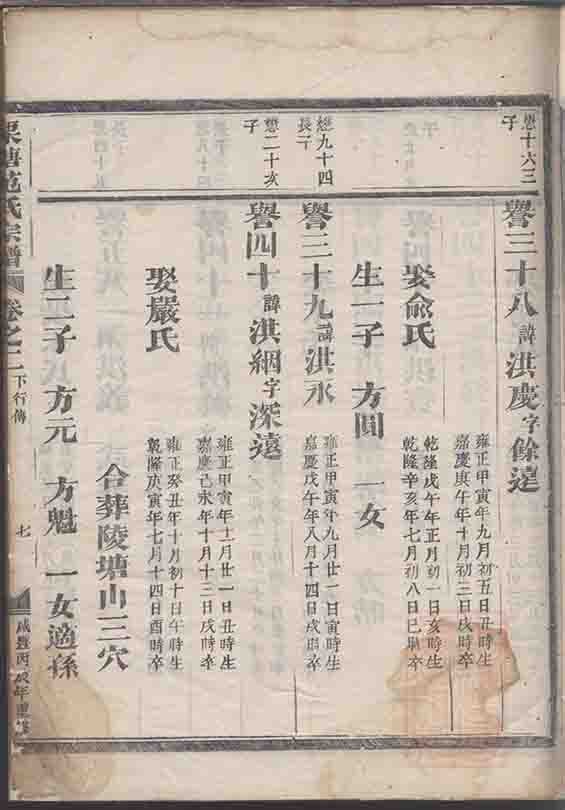 懋十六三子
譽三十八諱洪慶字餘遠
雍正甲寅年九月初五日丑時生
嘉慶庚午年十月初三日戌時卒
娶俞氏
乾隆戊午年正月初一日亥時生
乾隆辛亥年七月初八日巳時卒
生一子 方圓 一女
懋九十四長子
譽三十九諱洪永
雍正甲寅年九月廿一日寅時生
嘉慶戊午年八月十四日戌時卒
懋二十次子
譽四十諱洪絪字深遠
雍正甲寅年十一月廿一日丑時生
嘉慶己未年十月十二日戌時卒
娶嚴氏
雍正癸丑年十月初十日午時生
乾隆庚寅年七月十四日酉時卒
合葬陵塘山三穴
生二子 方元 方魁 一女適孫
范氏宗譜 卷之二 下行傳 七 咸豐丙辰年重修